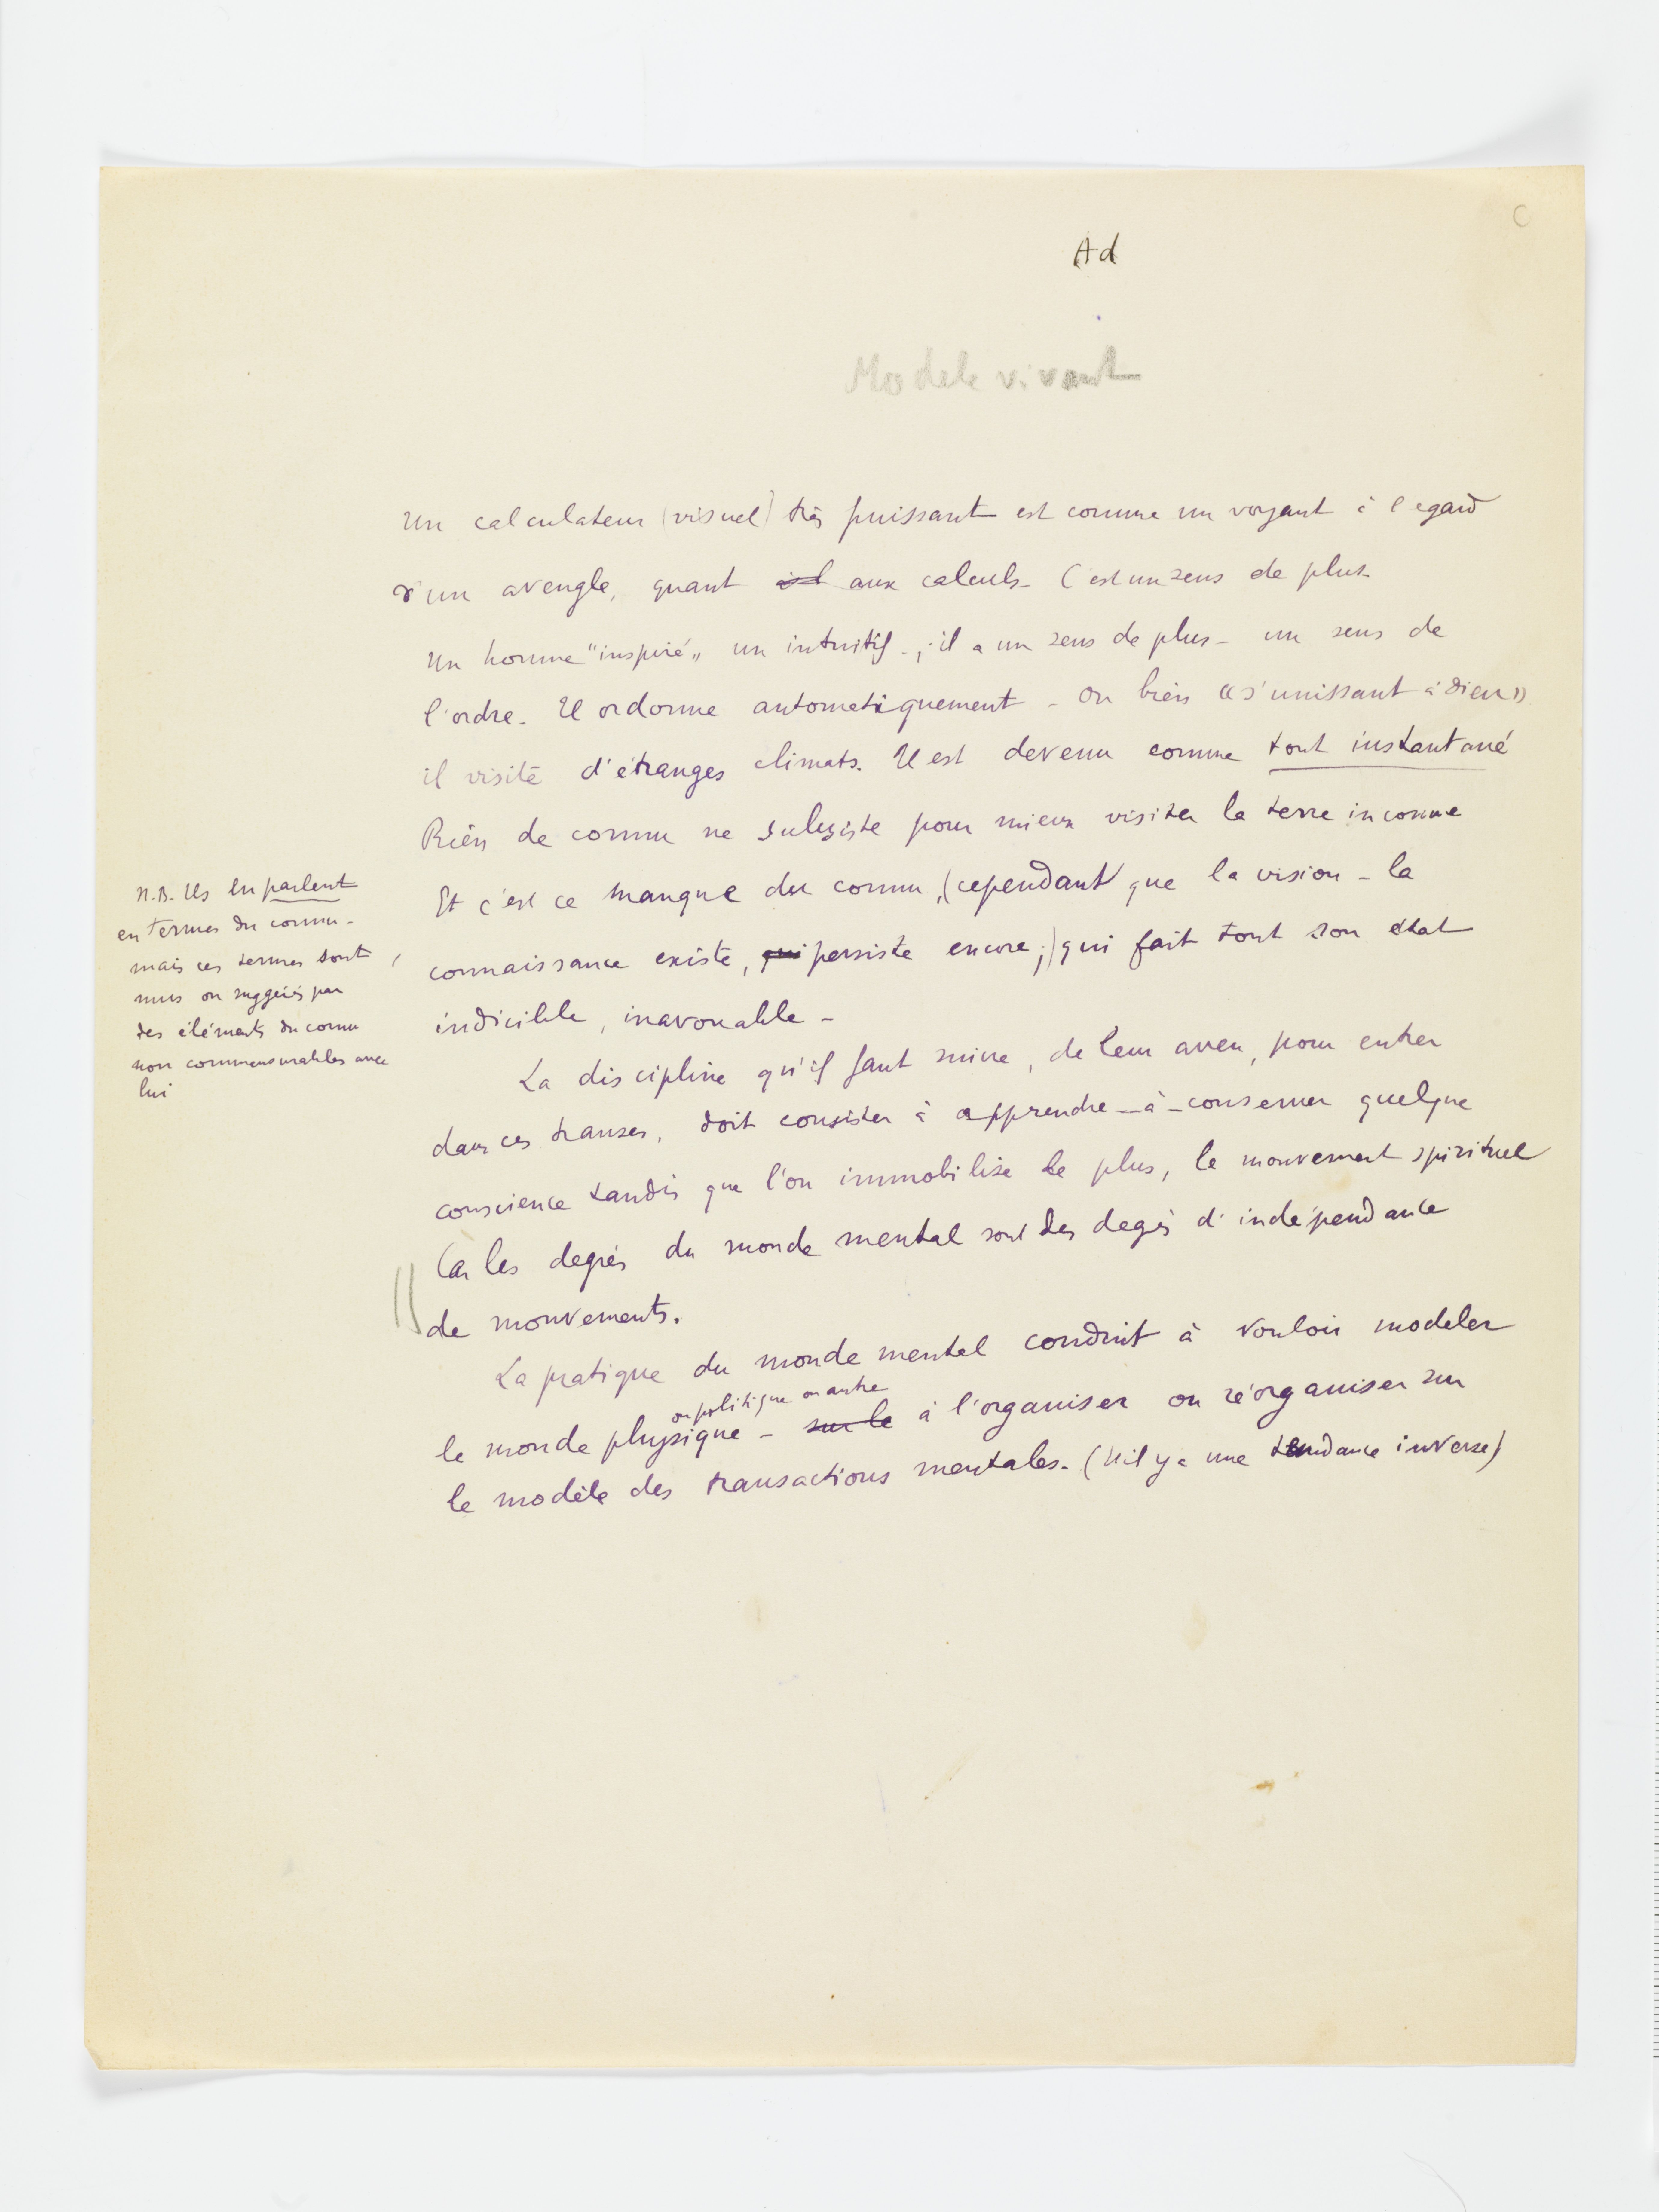 C
Ad
Modele vivant
Un calculateur (visuel) très puissant est comme un voyant à l'egard
d'un aveugle, quant aux calculs - C'est un sens de plus -
Un homme "inspiré" un intuitif - ; il a un sens de plus - un sens de
l'ordre. Il ordonne automatiquement - Ou bien « s'unissant à Dieu »
il visite d'étranges climats. Il est devenu comme tout instantané
Rien de connu ne subsiste pour mieux visiter la terre inconnue
Et c'est ce manque du connu, (cependant que la vision - la
connaissance existe, qui persiste encore ;) qui fait tout son état
indicible, inavouable -
La discipline qu'il faut suivre, de leur aveu, pour entrer
dans ces transes, doit consister à apprendre - à - conserver quelque
conscience tandis que l'on immobilise le plus, le mouvement spirituel
Car les degrés du monde mental sont des degrés d'indépendance
de mouvements.
La pratique du monde mental conduit à vouloir modeler
ou politique ou autre
le monde physique - sur le à l'organiser ou réorganiser sur
le modèle des transactions mentales. (Il y a une tendance inverse)
N.B. Ils en parlent
en termes du connu -
mais ces termes sont
mus ou suggérés par
des éléments du connu
non commensurables avec
lui